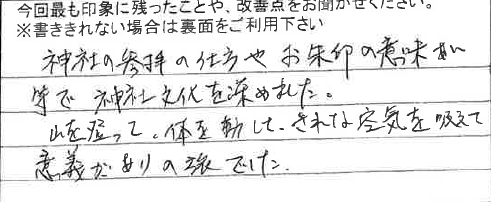 今回最も印象に残ったことや、改善点をお聞かせください。
※書ききれない場合は裏面をご利用下さい
神社の参拝の仕方やお朱印の意味あい
等で神社文化を深めました。
山を登って、体を動して、きれな空気を吸えて
意義がありの旅でした。